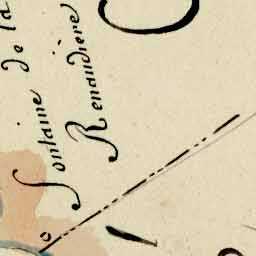 fontaine de la
Renaudière